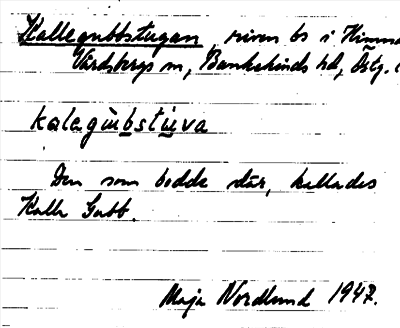 Kallegubbstugan, riven bs i Himna
Vårdsbergs sn, Bankekinds hd, Östg.
kalagùbstùva
Den som bodde där, kallades
Kalle Gubb.
Maja Nordlund 1947.